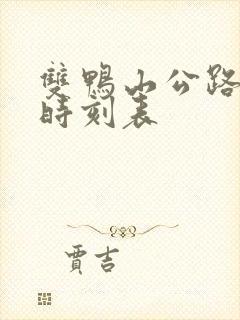 雙鴨山公路
時刻表
賈吉